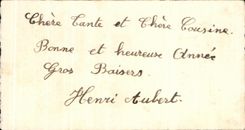 Chère Tante et Chère Cousine.
Bonne et heureuse Année
Gros Baisers.
Henri Aubert.